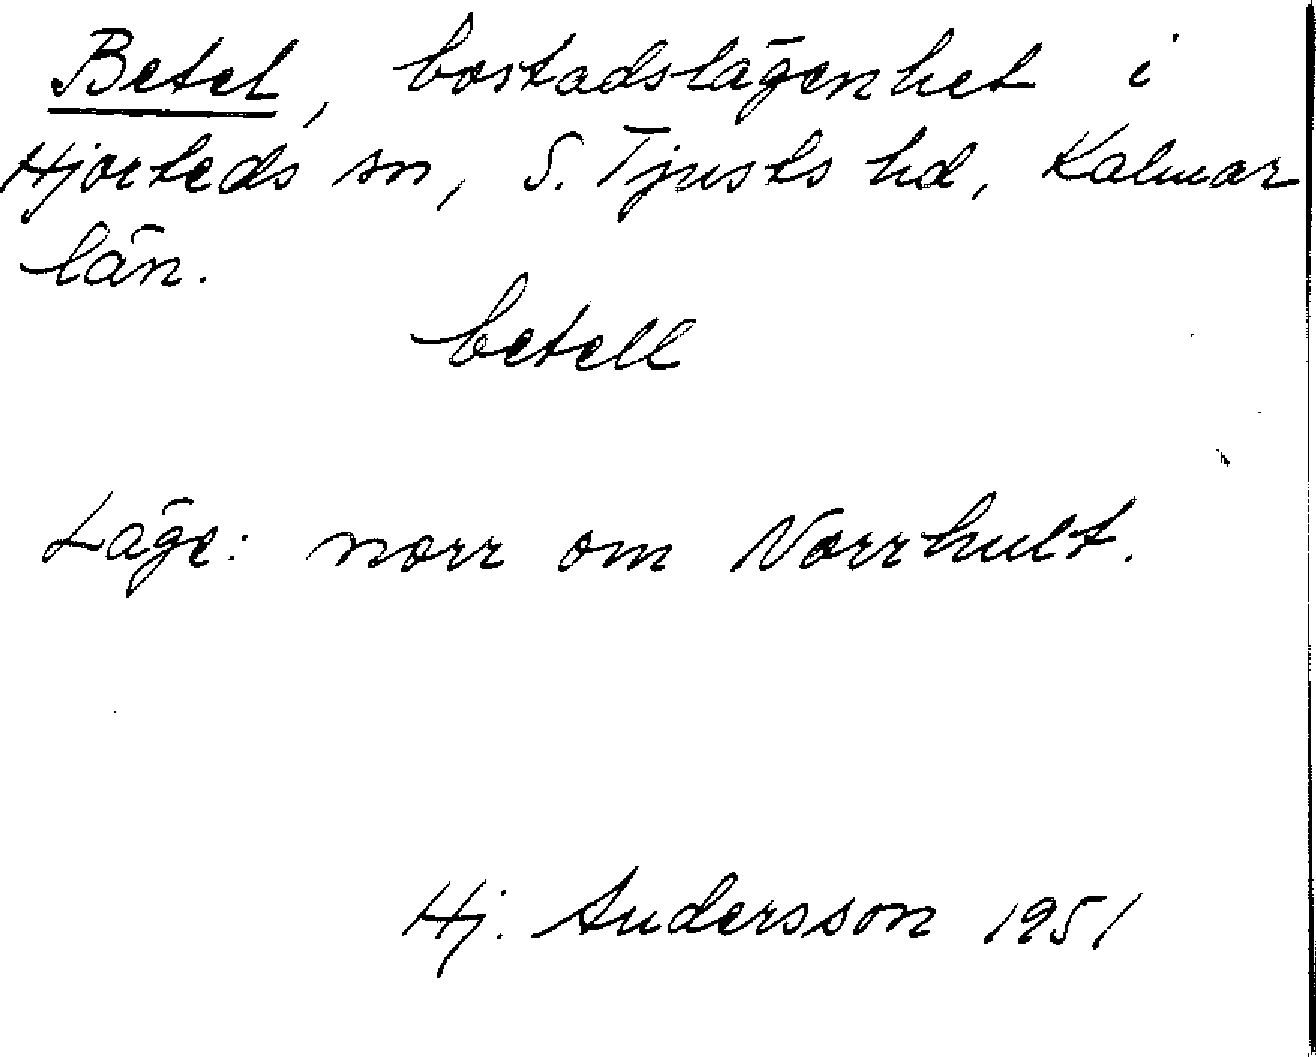 Betel, bostadslägenhet i
Hjorteds sn, S. Tjusts hd, Kalmar
län.
betell
Läge: norr om Norrhult.
Hj. Andersson 1951